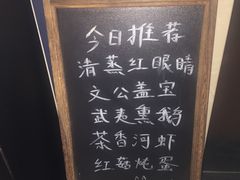 今日推荐
清蒸红眼睛
文公盖宝
武夷熏鹅
茶香河虾
红菇炖蛋